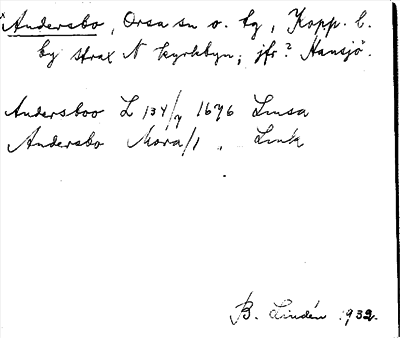 Andersbo, Orsa sn o. tg, Kopp. l.
by strax N kyrkbyn; jfr? Hansjö.
Andersboo L 134/7 1696 Lmsa
Andersbo Mora/1 „ Lmk
B. Lindén 1932.